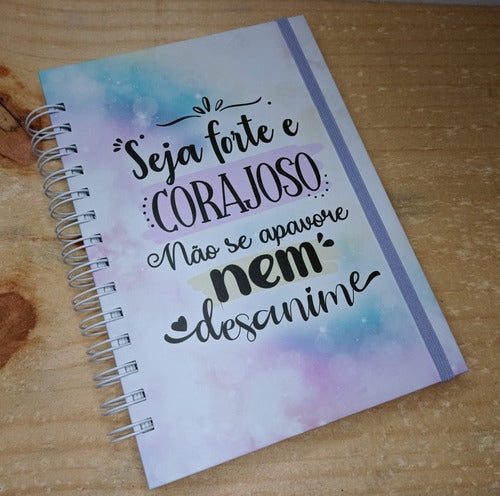 Seja forte e
CORAJOSO
Não se apavore
nem
desanime